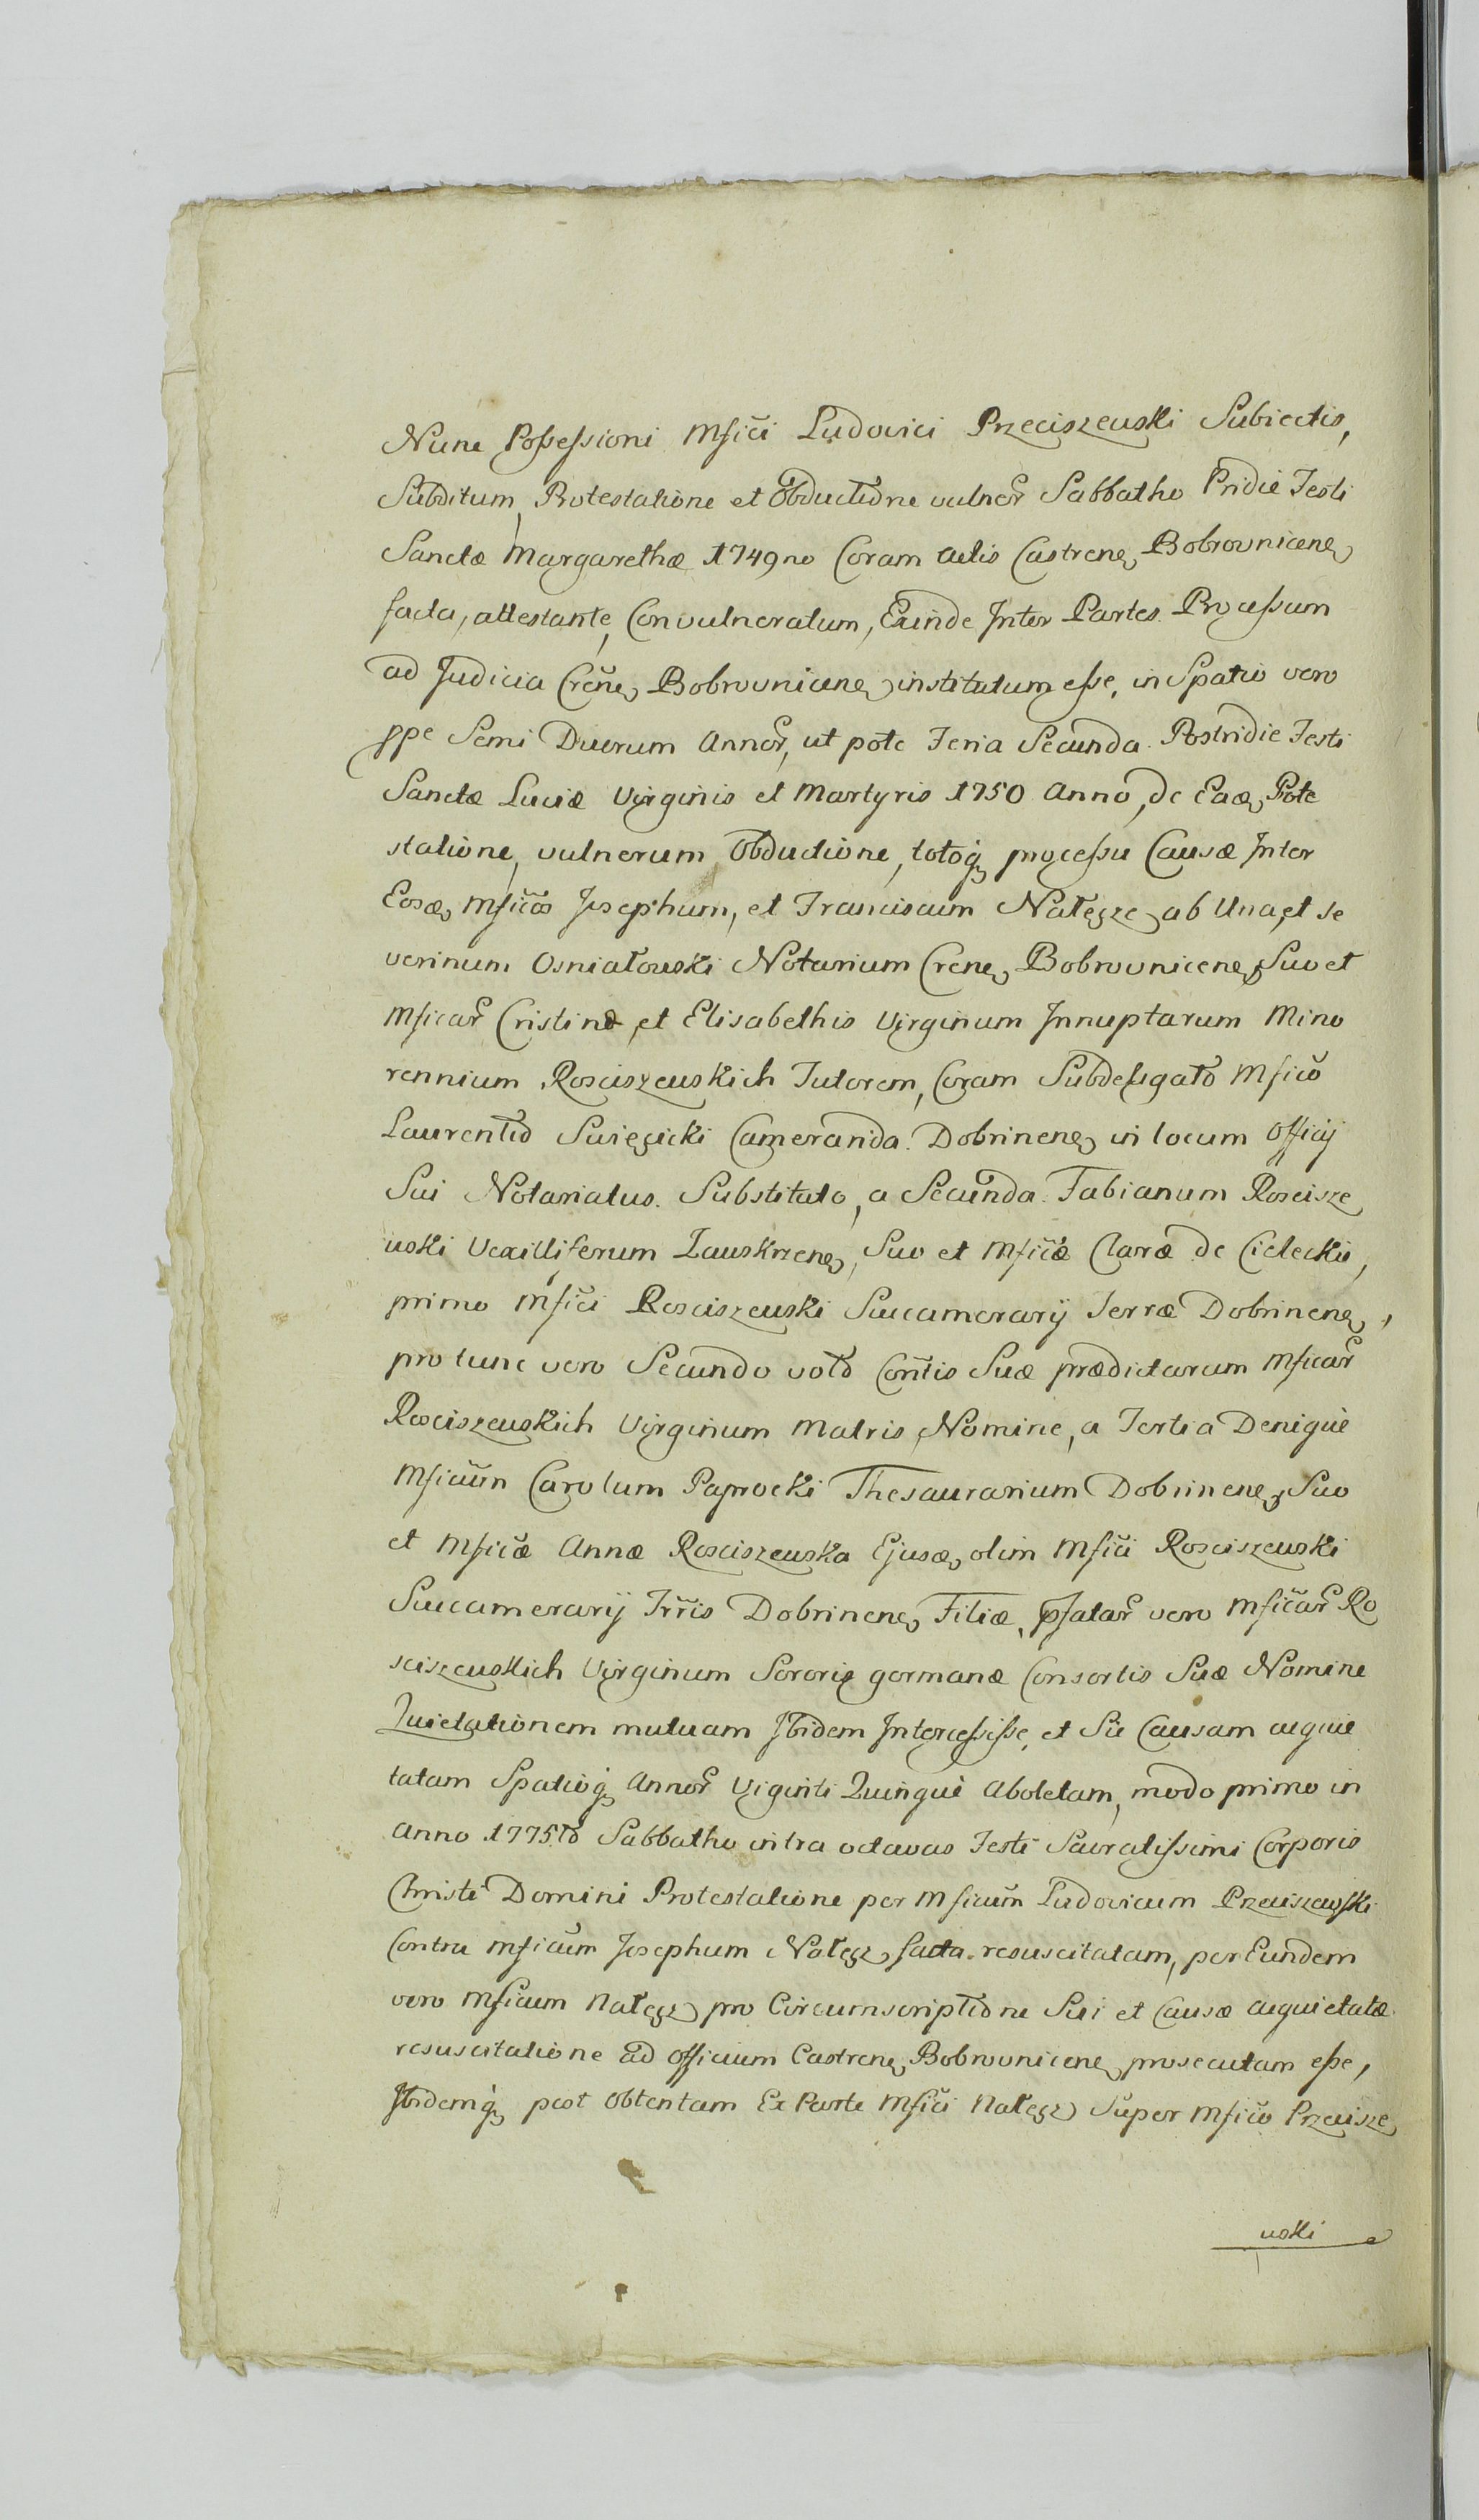 Nunc Possessioni Mfici Ludovici Przeciszewski Subiectis,
Subditum, Protestatione et Obductione vulner Sabbatho Pridie Festi
Sanctæ Margarethæ 1749no Coram actis Castrens Bobrovnicens
facta, attestante, Convulneratum, Exinde Inter Partes Processum
ad Judicia Crens Bobrovnicens institutum esse, in Spatio vero
ppe Semi Duorum Annor, ut pote Feria Secunda Postridie Festi
Sanctæ Luciæ Virginis et Martyris 1750 Anno, de Eade Pote
statione, vulnerum Obductione, totoq processu Causæ Inter
Eosde Mficos Josephum, et Franciscum Nałęcze ab Una, et Se
verinum Osniałowski Notarium Crens Bobrovnicens, Suo et
Mficar Cristinæ, et Elisabethis Virginum Innuptarum Mino
rennium Rosciszewskich Tutorem, Coram Subdelegato Mfico
Laurentio Swięcicki Cameranda. Dobrinens in locum Officij
Sui Notariatus. Substituto, a Secunda Fabianum Roscisze
wski Vexilliferum Zauskrzens, Suo et Mficæ Claræ de Cieleckie,
primo Mfici Rosciszewski Succamerarij Terræ Dobrinens,
pro tunc vero Secundo voto Contis Suæ prædictarum Mficar
Rosciszewskich Virginum Matris Nomine, a Tertia Denique
Mficum Carolum Paprocki Thesaurarium Dobrinens, Suo
et Mficæ Annæ Rosciszewska Ejusde olim Mfici Rosciszewski
Succamerarij Trris Dobrinens Filiæ, pfatar vero Mficar Ro
sciszewskich Virginum Sororis germanæ Consortis Suæ Nomine
Quietationem mutuam Ibidem Intercessisse, et Sic Causam acquie
tatam Spatioq Annor Viginti Quinque Aboletam, modo primo in
Anno 1775to Sabbatho intra octavas Festi Sacratissimi Corporis
Christi Domini Protestatione per Mficum Ludovicum Przeciszewski
Contra Mficum Josephum Nałęcz facta resuscitatam, per Eundem
vero Mficum Nałęcz pro Circumscriptione Sui et Causæ acquietatæ
resuscitatione ad Officium Castrens Bobrovnicens prosecutam esse,
Ibidemq post Obtentam Ex Parte Mfici Nałęcz Super Mfico Przecisze
wski